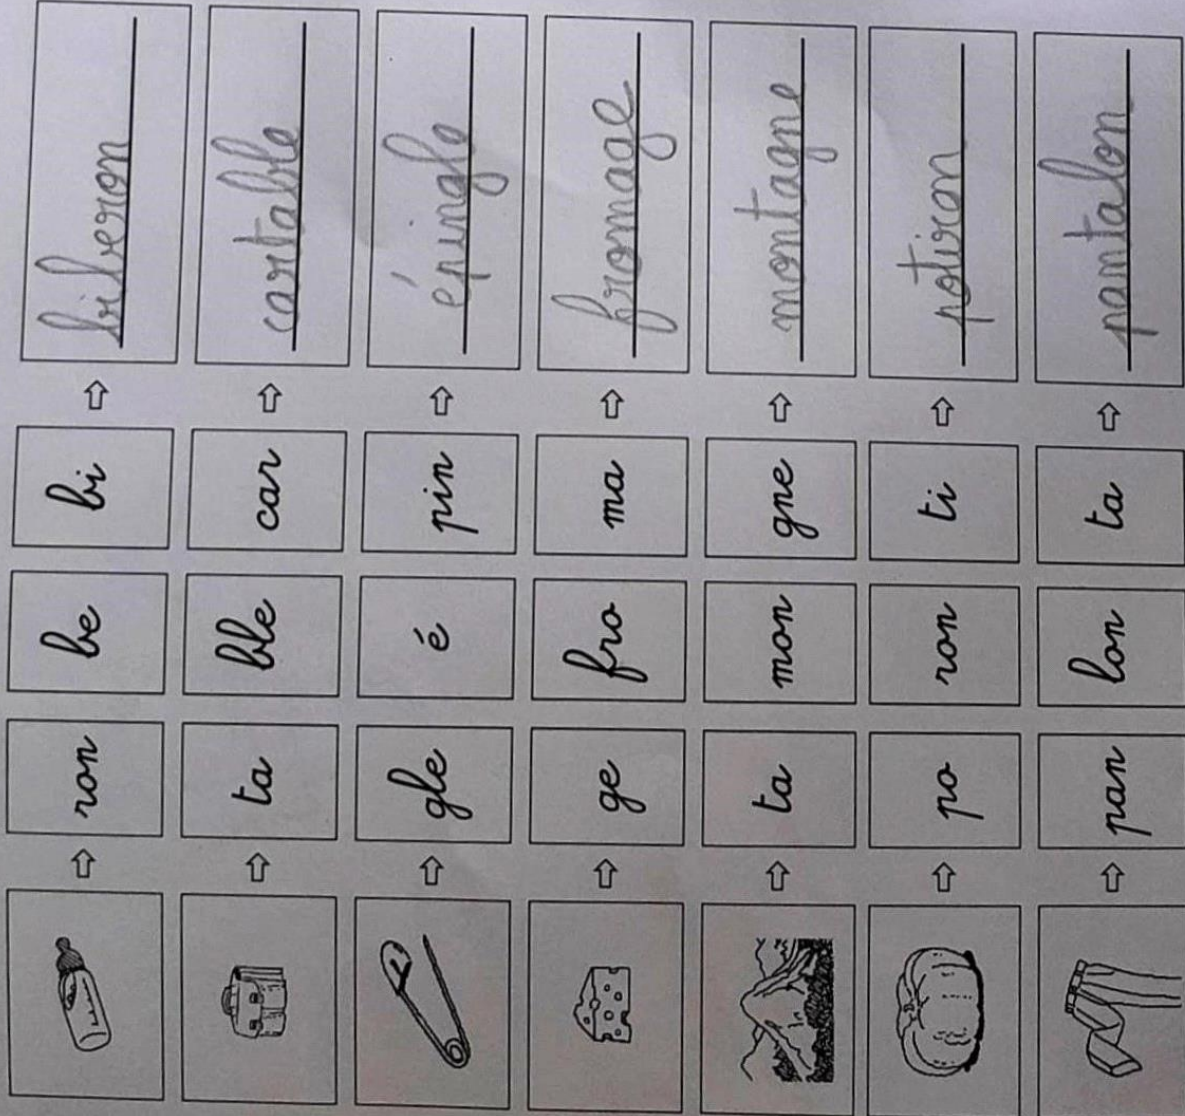 ron be bi biberon
ta ble car cartable
gle é pin épingle
ge fro ma fromage
ta mon gne montagne
po ron ti potiron
pan lon ta pantalon